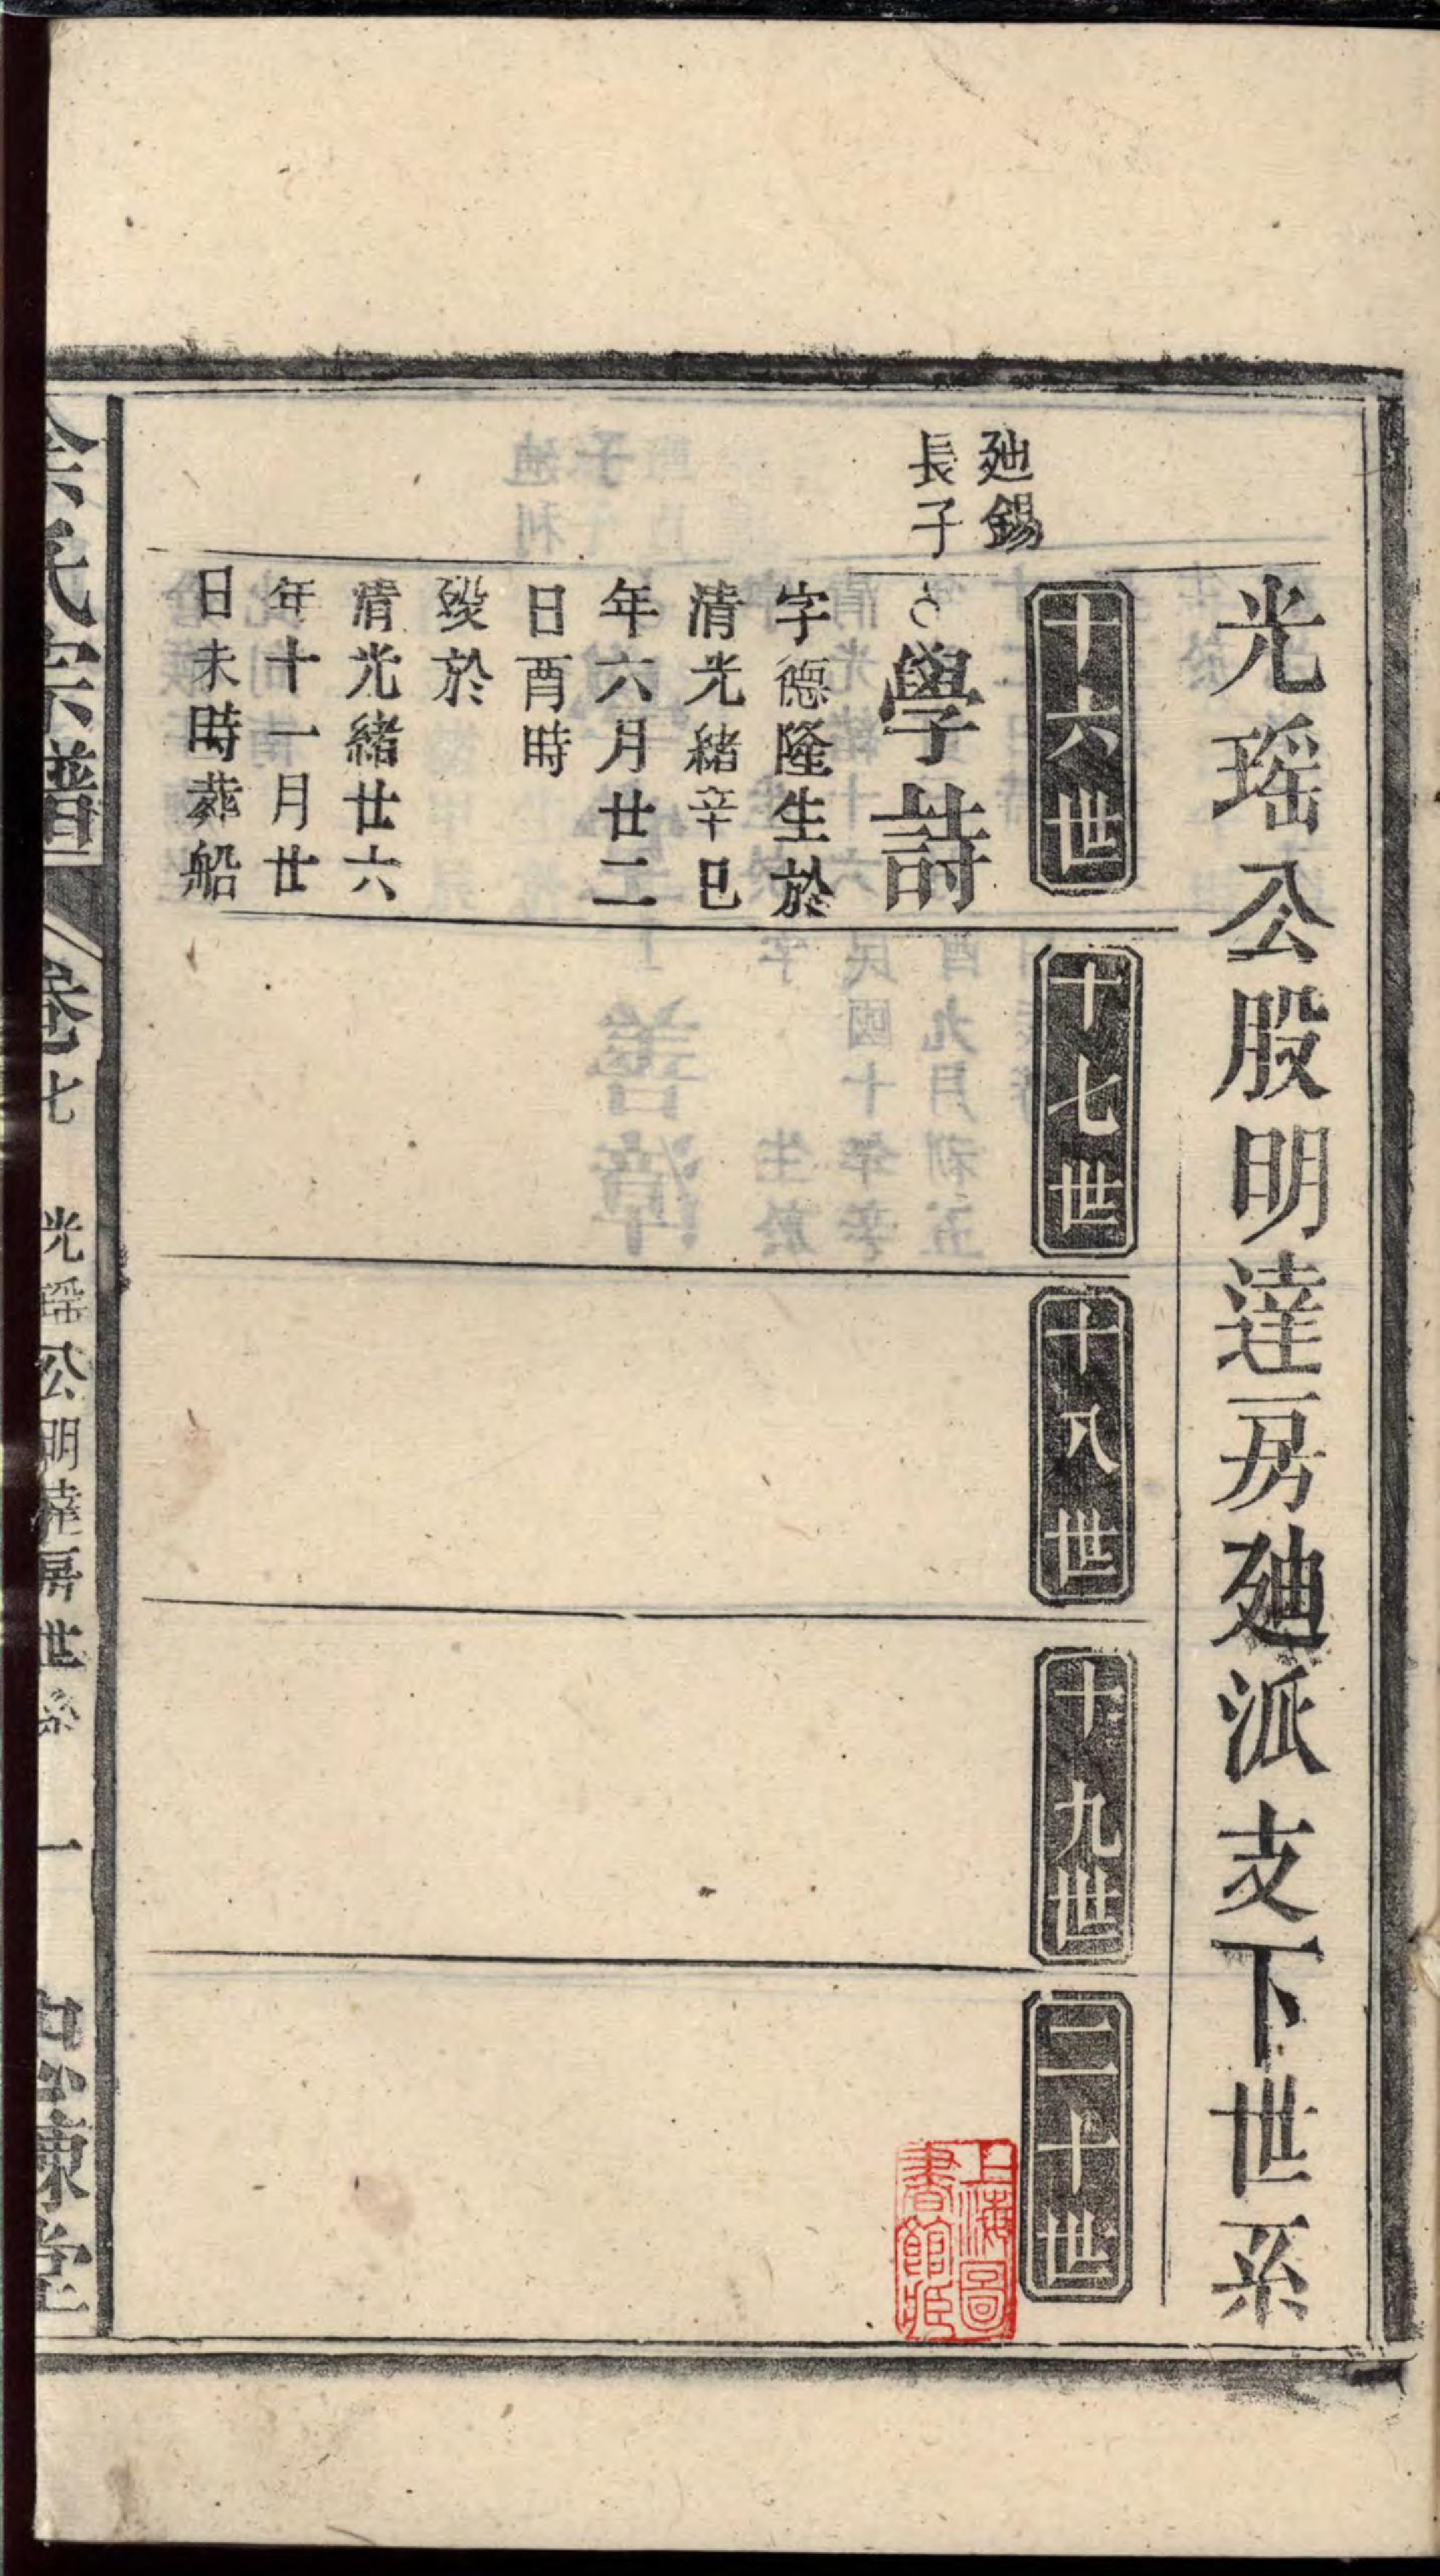 光瑶公股明達房廸派支下世系
十六世
十七世
十八世
十九世
二十世
廸錫
長子
學詩
字德隆生於
清光緒辛巳
年六月廿二
日酉時
歿於
清光緒廿六
年十一月廿
日未時葬船
氏宗譜
卷七
光瑶公明達房世系
一
堂
上海圖
書館藏